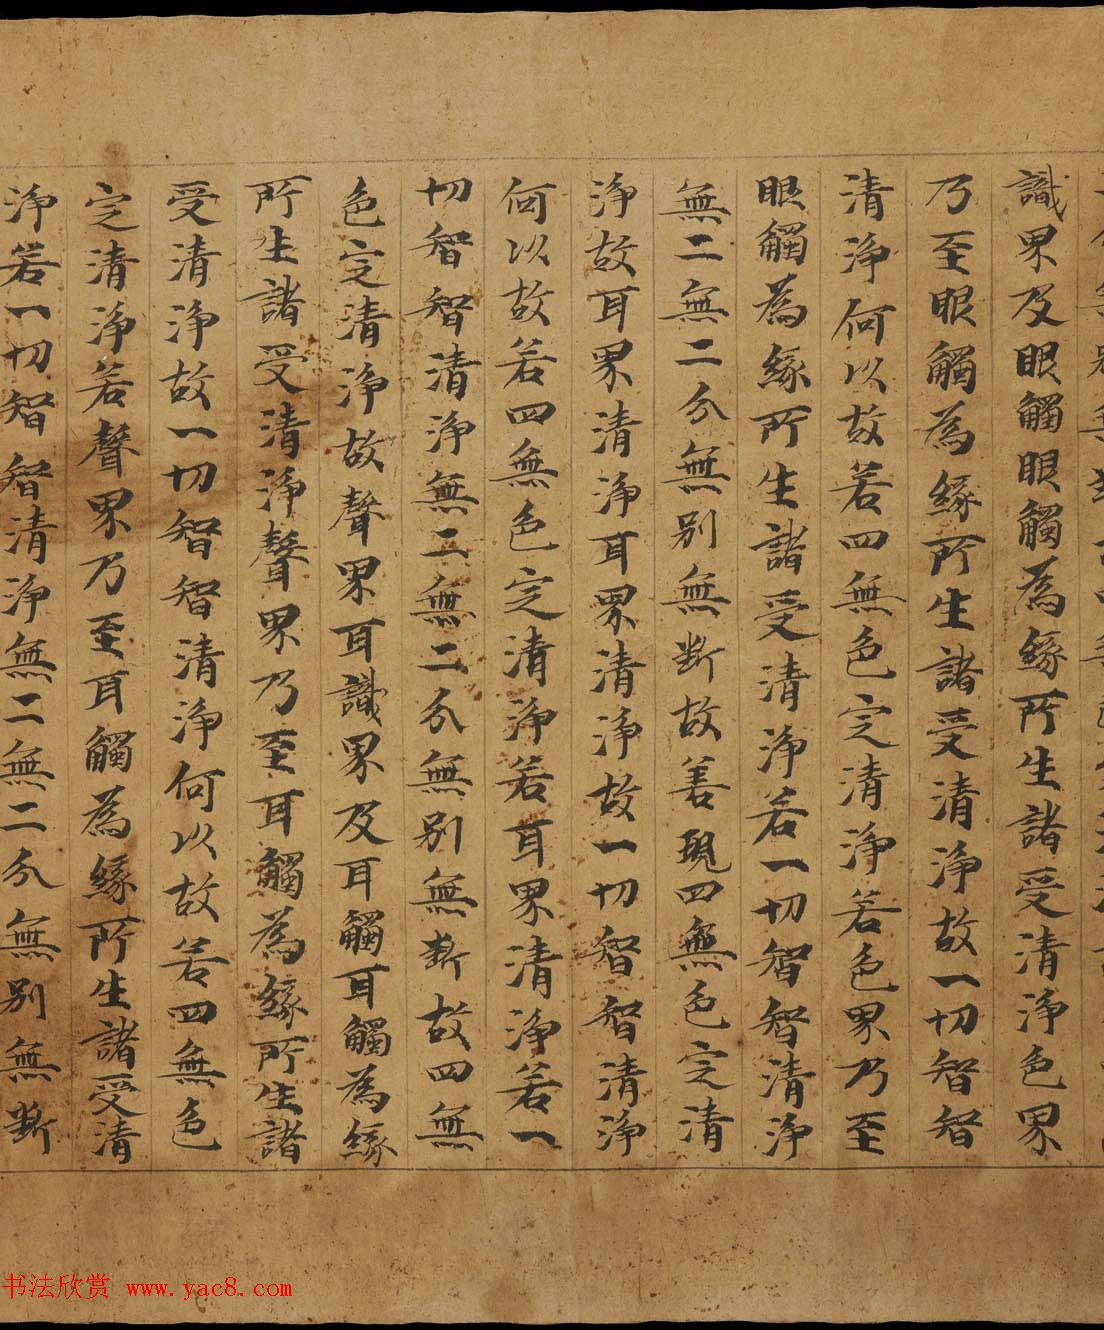 識界及眼觸眼觸為緣所生諸受清淨色界
乃至眼觸為緣所生諸受清淨故一切智智
清淨何以故若四無色定清淨若色界乃至
眼觸為緣所生諸受清淨若一切智智清淨
無二無二分無別無斷故善現四無色定清
淨故耳界清淨耳界清淨故一切智智清淨
何以故若四無色定清淨若耳界清淨若一
切智智清淨無二無二分無別無斷故四無
色定清淨故聲界耳識界及耳觸耳觸為緣
所生諸受清淨聲界乃至耳觸為緣所生諸
受清淨故一切智智清淨何以故若四無色
定清淨若聲界乃至耳觸為緣所生諸受清
淨若一切智智清淨無二無二分無別無斷
书法欣赏 www.yac8.com